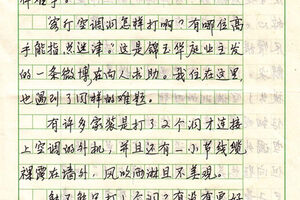 客厅空调洞怎样打啊？有哪位高
手能指点迷津。这是锦玉华庭业主发
的一条微博在向人求助。我住在这里，
也遇到了同样的难题。
有许多家装是打了2个洞才连接
上空调的外机，并且还有一小节线缆
裸露在墙外，风吹雨淋且不美观。
能不能只打1个洞？有没有更好